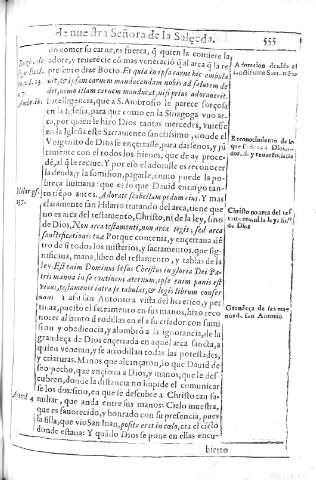 de nuestra Señora de la Salçeda. 555
do comer su carne, es fuerça, q̃ quien la comiere la
adore, y reverēcie cō mas veneraciō q̃ al arca q̃ la re
presentò
Et quia in ipsa carne hic ambula
uit, & ipsam carnem manducandam nobis ad salutem de
dit, nemo illam carnem manducat, nisi prius adoraverit.
intelligencia, que a S. Ambrosio le parece forçosa
en la Iglesia, para que como en la Sinagoga vuo ar-
ca, por quien le hizo Dios tantas mercedes, vuiesse
en la Iglesia este Sacramento santissimo, donde el
Vnigenito de Dios se encerrasse, para darsenos, y jū
tamente con el todos los bienes, que de ay proce-
de, al q̃ le recibe. Y por esso el adorarle es reconocer
la deuda, y la sumission, pagarle, como puede la po-
breça humana: que es lo que Dauid encargò tan-
to tiēpo antes. Adorate scabellum pedum eius. Y mas
claramente san Hilario tratando del arca, tiene que
no es arca del testamento, Christo, ni de la ley, sino
de Dios. Non arca testamenti, non arca legis; sed arca
sanctificationis tuæ. Porque contenia, y encerraua dē
tro de si todos los misterios, y sacramentos, que sig-
nificaua, mana, libro del testamento, y tablas de la
ley. Est enim Dominus Iesus Christus in gloria Dei Pa-
tris manna in se continens aeternum, ipse enim panis est
viuus, testamenti intra se tabulas, & legis librum conser
uans. Y assi san Antonio a vista del herege, y per-
tinaz, puesto el sacramento en sus manos, hizo reco-
nocer al bruto d rodillas en el a su criador con sumi
sion y obediencia, y alumbrò a la ignorancia, de la
grandeça de Dios encerrada en aquel arca sancta, a
quien veneran, y se arrodillan todas las potestades,
y criaturas. Manos que alcançaron, lo que Dauid de
seo pecho, que encierra a Dios, y manos, que le des-
cubren, donde la distancia no impide el comunicar
se los dos: sino, en que se descubre a Christo tan fa-
miliar, que anda entre sus manos: Cielo muestra,
que es fauorecido, y honrado con su presencia, pues
la silla, que vio San Iuan, posita erat in cælo, era el cielo
donde estaua: Y quādo Dios se pone en ellas encu-
bierto
Ambrosio.
Hilar.
Adoracion deuida al
santissimo Sacramēto
Reconocimiento de lo
que se deue a Dios
Christo no arca del tes
tamento, ni d la ley, sino
de Dios
Grandeça de las ma
nos de san Antonio